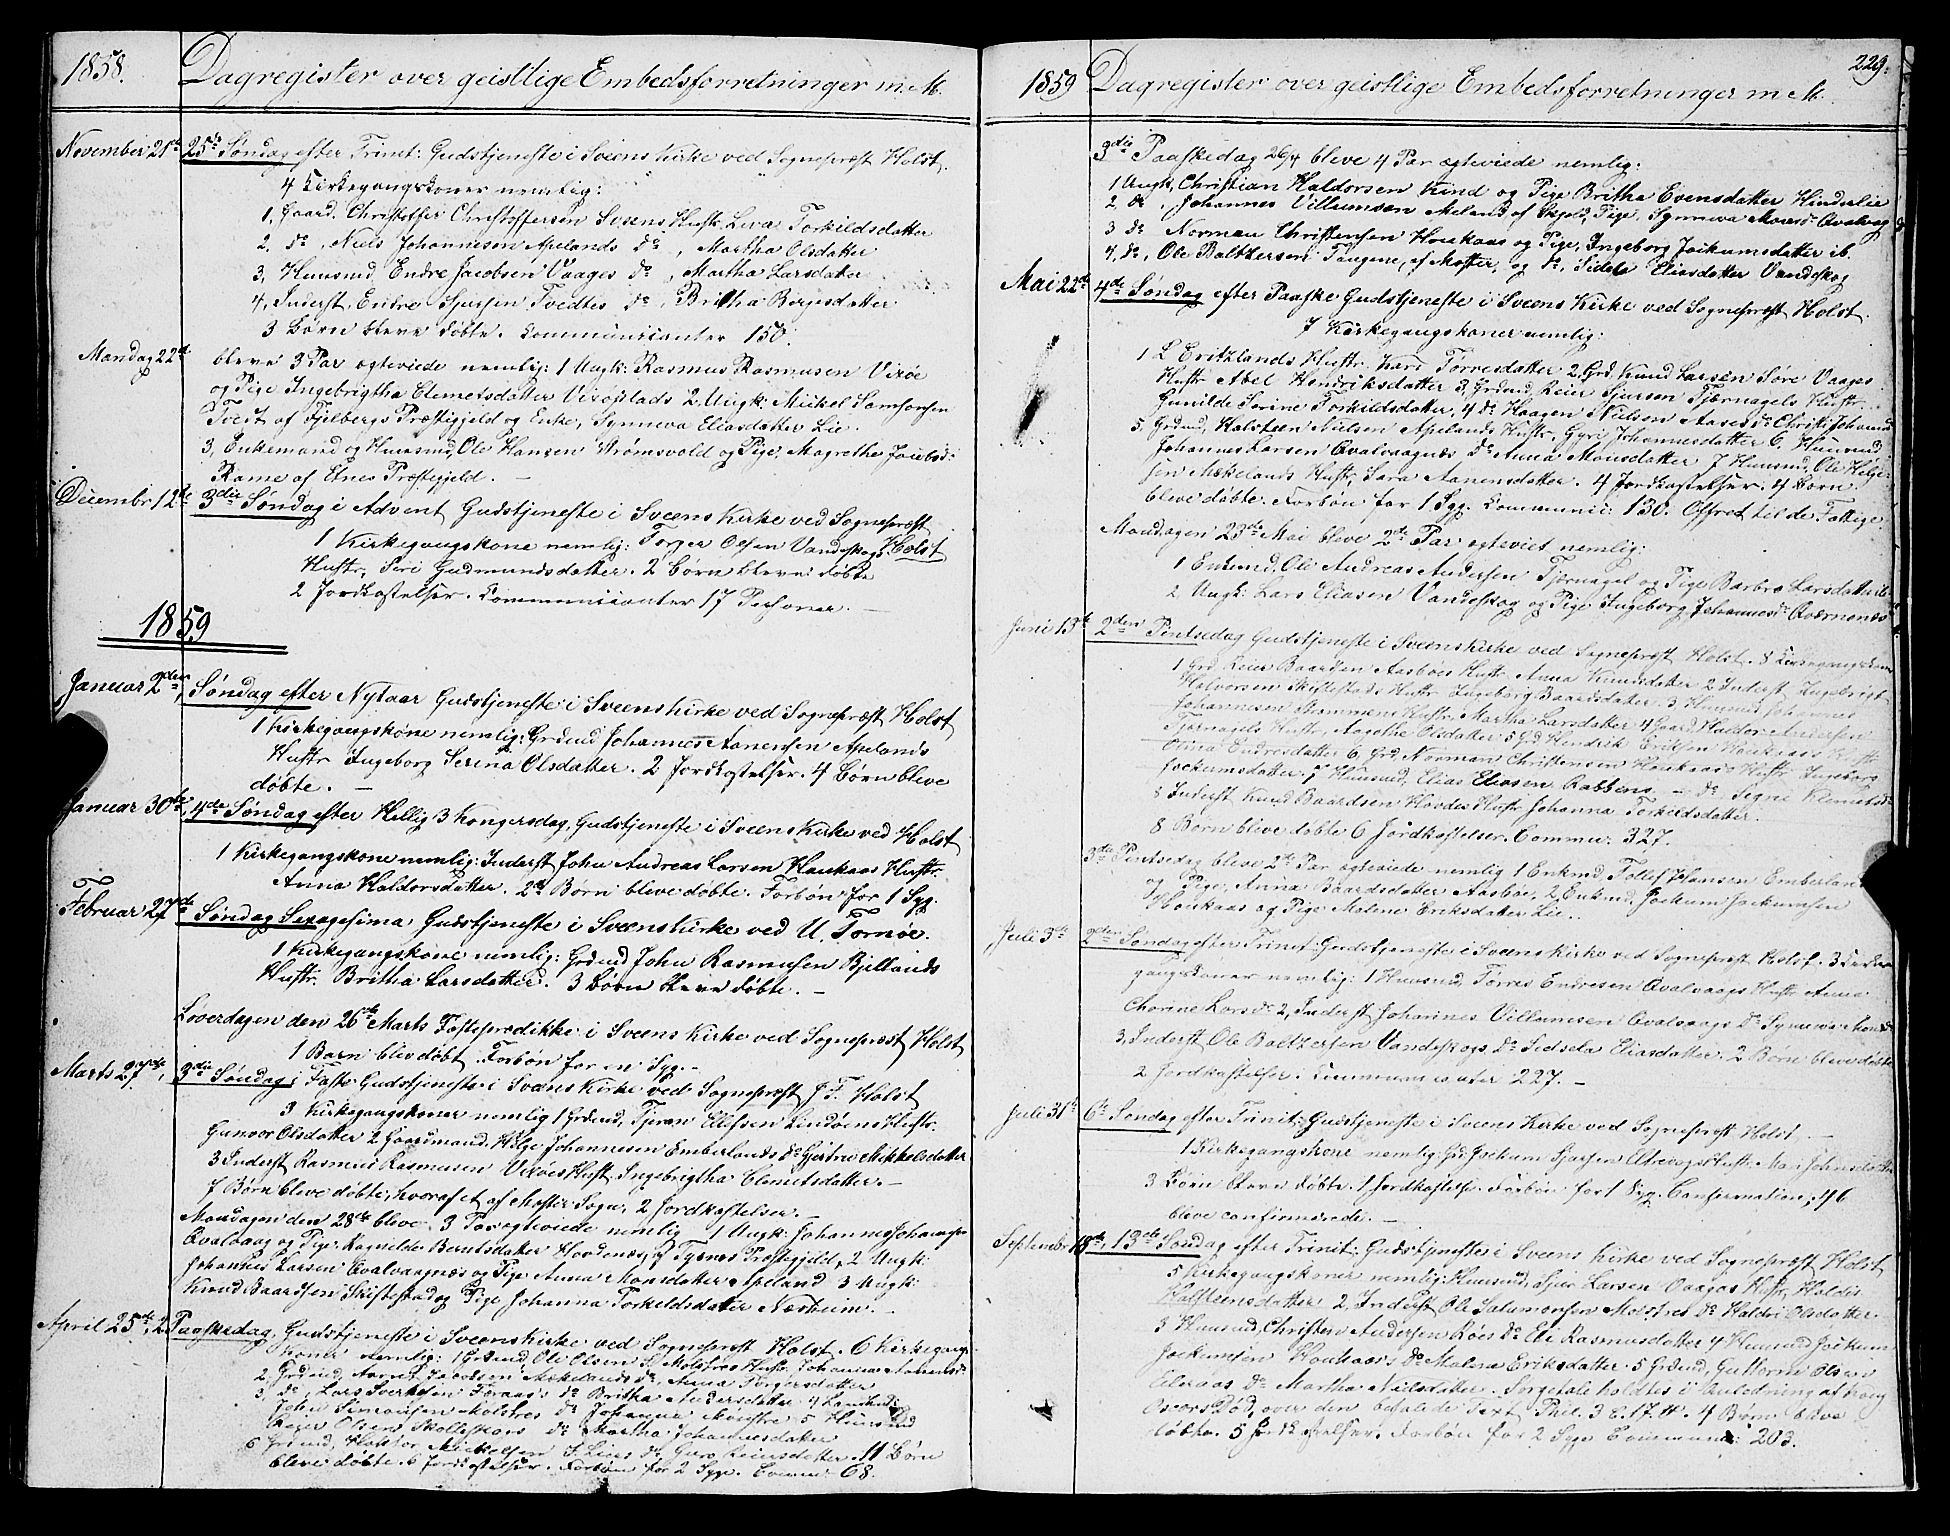 1858.
Dagregister over geistlige Embedsforretninger m. M.
November 21de 25de Søndag efter Trinit: Gudstjeneste i Sveens Kirke ved Sognepræst Holst.
4 Kirkegangskoner nemlig:
1, Gaard. Christoffer Christoffersen Sveens Hustr. Liva Torkildsdatter
2, do, Niels Johannesen Apelands do, Martha Olsdatter
3, Huusmd, Endre Jacobsen Vaages do, Martha Larsdatter
4, Inderst, Endre Sjursen Tvedtes do, Britha Børgesdatter
3 Børn bleve døbte. Communicanter 150.
Mandag 22de bleve 3 Par ægteviede nemlig: 1 Ungk: Rasmus Rasmusen Vixøe
og Pige Ingebrigtha Clemetsdatter Vixøplads 2 Ungk: Mickel Samsonsen
Tvedt af Fjelbergs Præstegjeld og Enke, Synneva Eliasdatter Lie.
3, Enkemand og Huusmd, Ole Hansen Strømsvold og Pige, Magrethe Jacobsd:
Rame af Etnes Præstegjeld. —
Decembr. 12te 3die Søndag i Advent Gudstjeneste i Sveens Kirke ved Sognepræst
Holst
1 Kirkegangskone nemlig: Torger Olsen Vandeskogs
Hustr, Siri Gudmundsdatter. 2 Børn bleve døbte
2 Jordkastelser. Communicanter 17 Personer. —
1859
Januar 2den, Søndag efter Nytaar Gudstjeneste i Sveens Kirke ved Sognepræst Holst
1 Kirkegangskone nemlig: Grdmd Johannes Aanensen Apelands
Hustr Ingeborg Serina Olsdatter. 2 Jordkastelser. 4 Børn bleve
døbte. —
Januar 30te, 4de Søndag efter Hellig 3 Kongersdag, Gudstjeneste i Sveens Kirke ved Holst
1 Kirkegangskone nemlig: Inderst John Andreas Larsen Haukaas Hustr.
Anna Haldorsdatter. 2de Børn bleve døbte. Forbøn for 1 Syg.
Februar 27de Søndag Sexagesima Gudstjeneste i Sveens Kirke ved U. Tornøe.
1 Kirkegangskone nemlig: Grdmd John Rasmusen Bjellands
Hustr. Britha Larsdatter. 3 Børn bleve døbte. —
Løverdagen den 26de Marts Fasteprædikke i Sveens Kirke ved Sognepræst Holst
1 Barn blev døbt. Forbøn for en Syg. —
Marts 27de, 3die Søndag i Faste Gudstjeneste i Sveens Kirke ved Sognepræst J. T. Holst
3 Kirkegangskoner nemlig 1 Grdmd, Tjeran Ellefsen Lindøens Hustr.
Gunvor Olsdatter 2 Gaardmand. Helge Johannesen Emberlands do Gjertrui Mikkelsdatter
3 Inderst Rasmus Rasmusen Vixøes Hustr Ingebrigtha Clemetsdatter. —
7 Børn bleve døbte, hvoraf et af Moster Sogn, 2 Jordkastelser. —
Mandagen den 28de bleve 3 Par ægteviede nemlig 1 Ungk: Johannes Johannesen
Qvalvaag og Pige Ragnilde Berntsdatter Hovdenæs, af Tysnes Præstegjeld, 2 Ungk:
Johannes Larsen Qvalvaagnæs og Pige Anna Monsdatter Apeland 3 Ungk:
Knud Baardsen Skiftestad og Pige Johanna Torkeldsdatter Næsheim. —
April 25de, 2 Paaskedag, Gudstjeneste i Sveens Kirke ved Sognepræst Holst. 6 Kirkegangs-
koner nemlig: 1 Grdmd, Ole Olsen S. Mølstres Hustr. Johanna
2, Grdmd, Jacobsen do, Anna Torgersdatter
3, do, Lars Sverkesen Foraas do Britha Andersdatter 4
John Simonsen Mølstres do Johanna 5 Huusmd
Reier Olsen do Martha Johannesdatter
6 Grdmd, Mickelsen S. Lies do Guro Reiersdatter. 11 Børn
bleve døbte. 6 Jordkastelser. Forbøn for 2 Syge. Commu: 68.
1859
Dagregister over geistlige Embedsforretninger m. M.
229.
3die Paaskedag 26/4 bleve 4 Par ægteviede nemlig:
1 Ungk, Christian Haldorsen Kind og Pige Britha Evensdatter Hindralie
2 do, Johannes Villumsen Meland af Skjold, Pige, Synneva Qvalvaag
3 do Norman Christensen Houkaas og Pige, Ingeborg Jockumsdatter ib.
4, do, Ole Baltzersen Tangene, af Moster, og do, Sidsela Eliasdatter Vandeskog
Mai 22de 4de Søndag efter Paaske Gudstjeneste i Sveens Kirke ved Sognepræst Holst.
7 Kirkegangskoner nemlig:
1 L Eritzlands Hustr. Kari Torresdatter 2, Grd. Knud Larsen Søre Vaages
Hustr Abel Hendriksdatter 3, Grdmd, Reier Sjursen Tjernagels Hustr.
Gunilde Serine Torkildsdatter, 4 do Haagen Nielsen Aases do Christi Johannd
5, Grdmd, Halsteen Nielsen Apelands Hustr, Gyri Johannesdatter 6, Huusmd,
Johannes Larsen Qvalvaagnæs do Anna Monsdatter 7 Huusmd, Ole Helge-
sen Mækelands Hustr, Sara Aanensdatter. 4 Jordkastelser. 4 Børn
bleve døbte. Forbøn for 1 Syg. Communic: 130. Offret til de Fattige
Mandagen 23de Mai bleve 2de Par ægteviet nemlig:
1 Enkmd, Ole Andreas Andersen Tjernagel og Pige Barbro Larsdatter ib
2 Ungk: Lars Eliasen Vandeskog og Pige Ingeborg Johannesd: Qværnenæs
Juni 13de 2den Pintsedag Gudstjeneste i Sveens Kirke ved Sognepræst Holst. 8 Kirkegangskoner
1 Grd Reier Baardsen Aasbøes Hustr Anna Knudsdatter 2 Inderst Ingebrigt
Halvorsen Skiftestads Hustr Ingeborg Baardsdatter. 3 Huusmd Johannes
Johannesen Strømmens Hustr, Martha Larsdatter 4 Gaard, Haldor Andersen
Tjernagels Hustr, Aagothe Olsdatter 5 Grd Hendrik Eriksen Houkaas Hustr
Olina Endresdatter 6, Grd, Norman Christensen Houkaas Hustr Ingeborg
Jockumsdatter. 7 Huusmd, Elias Eliasen Rabbens — do Signi Klemetsd:
8 Inderst Knud Baardsen Hovdes Hustr Johanna Torkildsdatter.
8 Børn bleve døbte 6 Jordkastelser. Commu: 327.
3die Pintsedag bleve 2de Par ægteviede nemlig 1 Enkmd Tollef Hansen Emberland
og Pige, Anna Baardsdatter Aasbøe, 2, Enkmd, Jockum Jockumsen
Houkaas og Pige Malene Eriksdatter Lie. —
Juli 3de 2den Søndag efter Trinit: Gudstjeneste i Sveens Kirke ved Sognepræst Holst. 3 Kirke-
gangskoner nemlig: 1 Huusmd Torres Endresen Qvalvaags Hustr Anna
Chorine Larsd: 2, Inderst Johannes Villumsen Qvalvaags do Synneva
3, Inderst Ole Baltzersen Vandeskogs, do Sidsela Eliasdatter. 2 Børn bleve døbte
2 Jordkastelser. Communicanter 227. —
Juli 31te 6te Søndag efter Trinit: Gudstjeneste i Sveens Kirke ved Sognepræst Holst. —
1 Kirkegangskone nemlig: Grd Jockum Sjursen Hustr. Mari Johnsdatter
3 Børn bleve døbte. 1 Jordkastelse. Forbøn for 1 Syg. Confirmation, 46
bleve confirmerede. —
September 18de, 13de Søndag efter Trinit: Gudstjeneste i Sveens Kirke ved Sognepræst Holst
5 Kirkegangskoner nemlig: Huusmd, Sjur Larsen Vaages Hustr, Haldis
Halsteensdatter 2, Inderst Ole Salamonsen Mølstres do Haldri Olsdatter.
3 Huusmd, Christen Andersen Røes do Eli Rasmusdatter 4 Huusmd Jockum
Jockumsen Houkaas do Malena Eriksdatter. 5 Grdmd, Guttorm Olsen
Eileraas do Martha Nielsdatter. Sørgetale holdtes i Anledning af Kong
Oscars Død, over den befalede Text Phil. 3 C. 17. V. 4 Børn bleve
døbte. 5 Jordkastelser. Forbøn for 2 Syge Commun: 203.